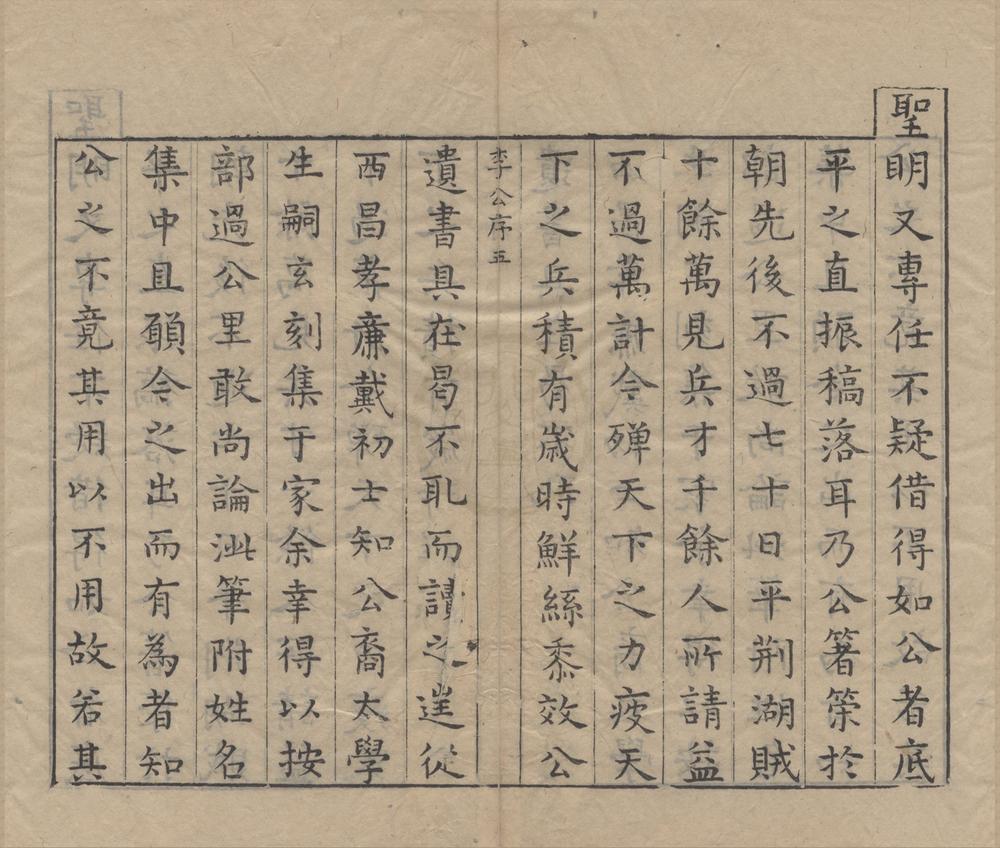 聖明又專任不疑借得如公者底
平之直振稿落耳乃公箸筞於
朝先後不過七十日平荆湖賊
十餘萬見兵才千餘人所請益
不過萬計令殫天下之力疲天
下之兵積有歲時鮮絲黍效公
李公序 五
遺書具在曷不取而讀之迬從
西昌孝亷戴初士知公裔太學
生嗣玄刻集于家余幸得以按
部過公里敢尚論泚筆附姓名
集中且願令之出而有為者知
公之不竟其用以不用故若其